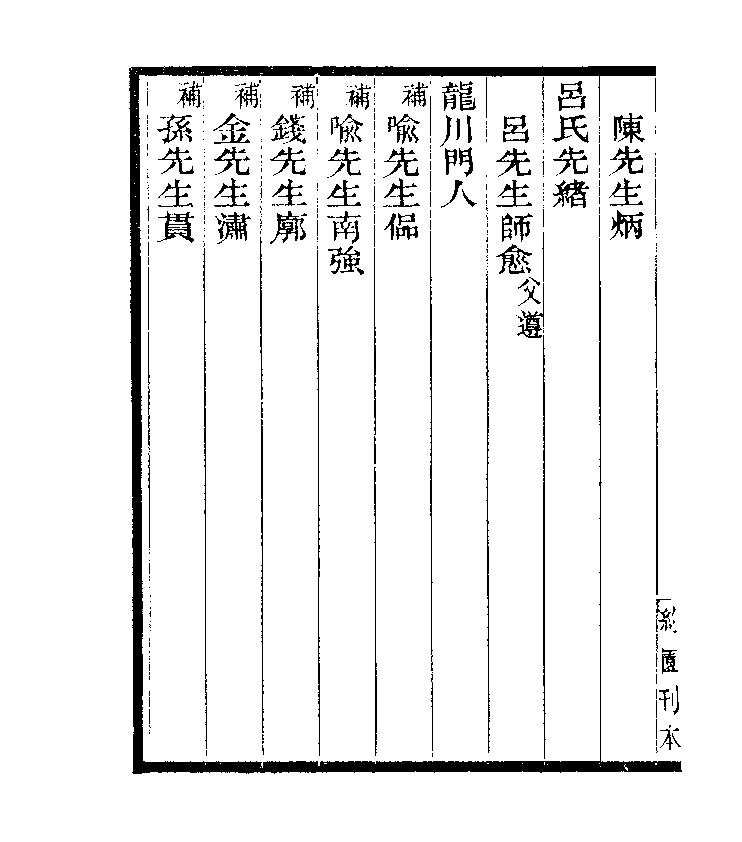 陳先生炳
呂氏先緒
呂先生師愈父遵
龍川門人
補喻先生偘
補喻先生南強
補錢先生廓
補金先生潚
補孫先生貫
約園刊本